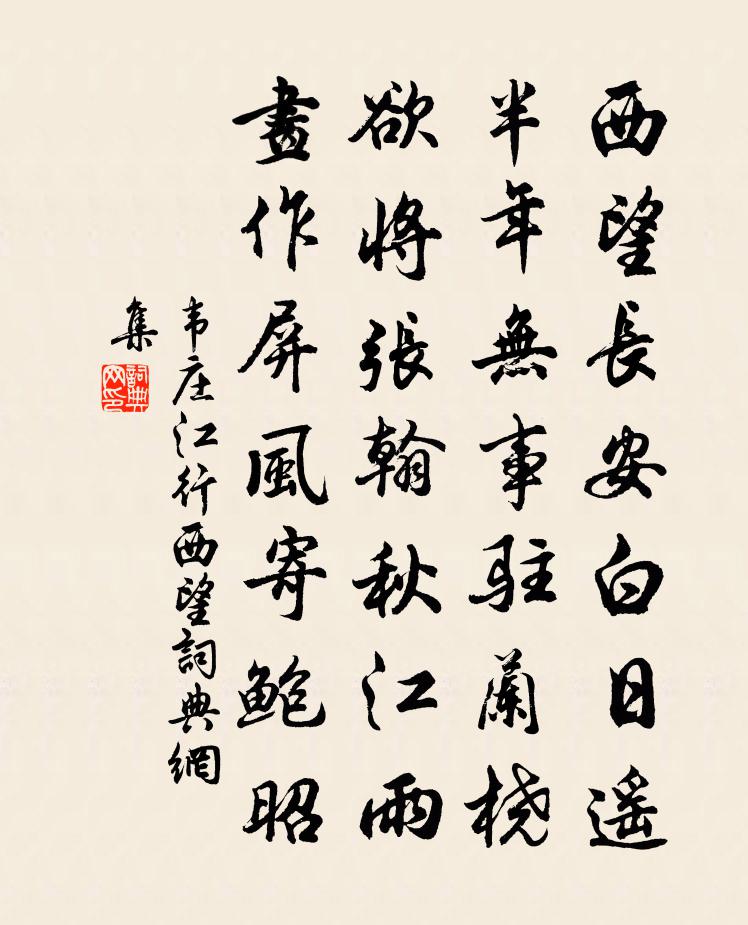 西望長安白日遥
半年無事駐蘭橈
欲將張翰秋江雨
畫作屏風寄鮑昭
韦庄江行西望詞典網
集
詞典
网印